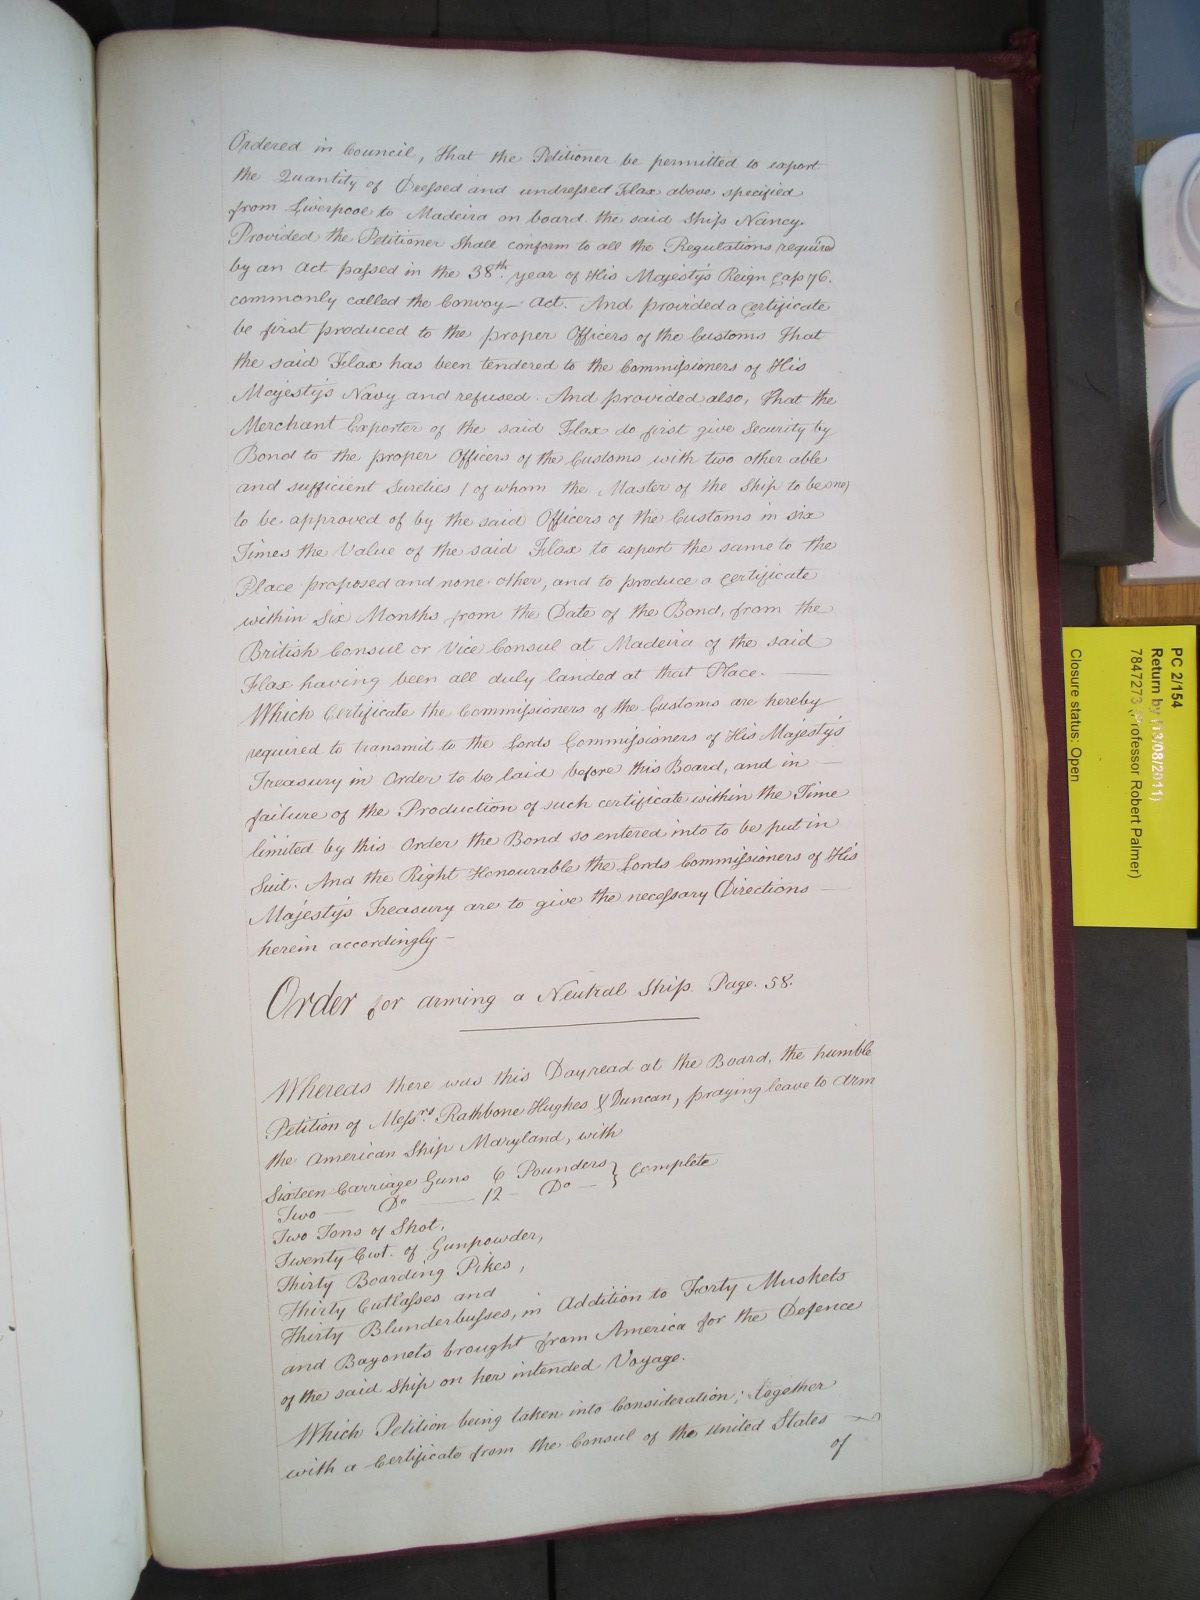 Ordered in Council, that the Petitioner be permitted to export
the Quantity of Dressed and undressed Flax above specified
from Liverpool to Madeira on board the said Ship Nancy.
Provided the Petitioner shall conform to all the Regulations required
by an Act passed in the 38th. year of His Majesty's Reign Cap 76.
commonly called the Convoy - Act. And provided a Certificate
be first produced to the proper Officers of the Customs that
the said Flax has been tendered to the Commissioners of His
Majesty's Navy and refused. And provided also, that the
Merchant Exporter of the said Flax do first give Security by
Bond to the proper Officers of the Customs with two other able
and sufficient Sureties / of whom the Master of the Ship to be one)
to be approved of by the said Officers of the Customs in six
Times the Value of the said Flax to export the same to the
Place proposed and none other, and to produce a Certificate
within Six Months from the Date of the Bond, from the
British Consul or Vice Consul at Madeira of the said
Flax having been all duly landed at that Place. —
Which Certificate the Commissioners of the Customs are hereby
required to transmit to the Lords Commissioners of His Majesty's
Treasury in Order to be laid before this Board, and in —
failure of the Production of such certificate within the Time
limited by this Order the Bond so entered into to be put in
Suit. And the Right Honourable the Lords Commissioners of His
Majesty's Treasury are to give the necessary Directions —
herein accordingly —
Order for arming a Neutral Ship. Page. 58.
Whereas there was this Day read at the Board, the humble
Petition of Messrs. Rathbone Hughes & Duncan, praying leave to Arm
the American Ship Maryland, with
Sixteen Carriage Guns 6 Pounders } Complete
Two — Do — 12 — Do — }
Two Tons of Shot,
Twenty Cwt. of Gunpowder,
Thirty Boarding Pikes,
Thirty Cutlasses and
Thirty Blunderbusses, in Addition to Forty Muskets
and Bayonets brought from America for the Defence
of the said Ship on her intended Voyage.
Which Petition being taken into Consideration; together
with a Certificate from the Consul of the United States
of
PC 2/154
Return by (13/08/2011)
7847273 (Professor Robert Palmer)
Closure status: Open